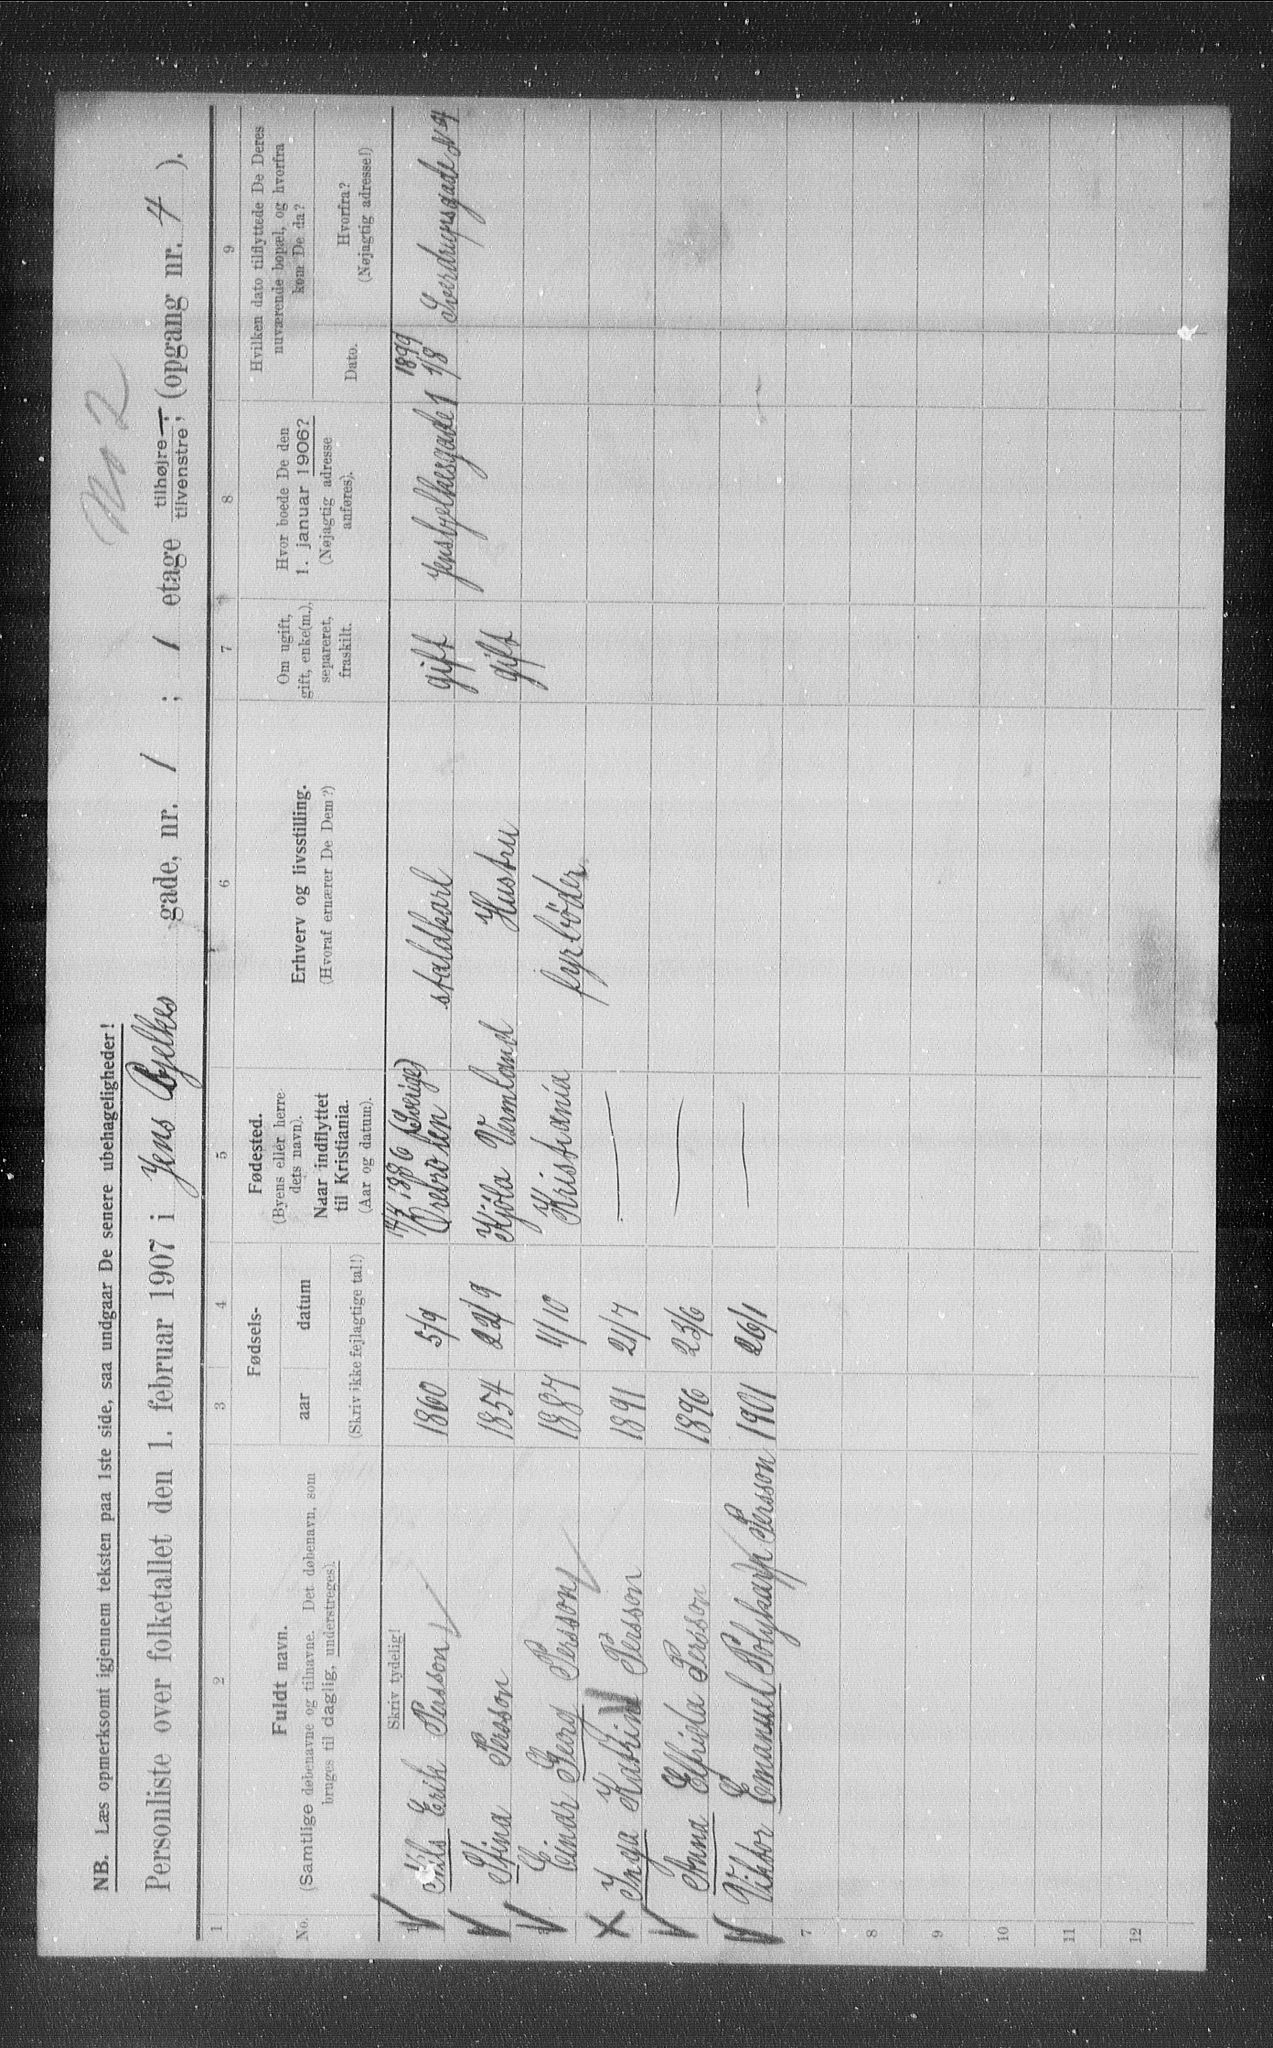 No 2
NB. Læs opmerksomt igjennem teksten paa 1ste side, saa undgaar De senere ubehageligheder!
Personliste over folketallet den 1. februar 1907 i Jens Bjelkes gade, nr. 1 ; 1 etage tilhøjre tilvenstre; (opgang nr. 4 ).
1 2 3 4 5 6 7 8 9
No.
Fuldt navn.
(Samtlige døbenavne og tilnavne. Det døbenavn, som
bruges til daglig, understreges).
Fødsels-
aar datum
(Skriv ikke fejlagtige tal!)
Fødested.
(Byens eller herre-
dets navn).
Naar indflyttet
til Kristiania.
(Aar og datum).
Erhverv og livsstilling.
(Hvoraf ernærer De Dem?)
Om ugift,
gift, enke(m.),
separeret,
fraskilt.
Hvor boede De den
1. januar 1906?
(Nøjagtig adresse
anføres).
Hvilken dato tilflyttede De Deres
nuværende bopæl, og hvorfra
kom De da?
Dato.
Hvorfra?
(Nøjagtig adresse!)
Skriv tydelig!
14/4 1886 (Sverige) 1899
1 Nils Erik Persson 1860 5/9 Örebro len staldkarl gift Jensbjelkesgade 1 1/8 Sverdrupsgade N 4
Stina Persson 1854 22/9 Vermland Hustru gift
3 Einar Georg Persson 1887 4/10 Kristiania fyrböder
Inga Katrine Persson 1891 21/7 —
Anna Elfrida Persson 1896 23/6 —
Viktor Emanuel Polykarp Persson 1901 26/1 —
7
8
9
10
11
12